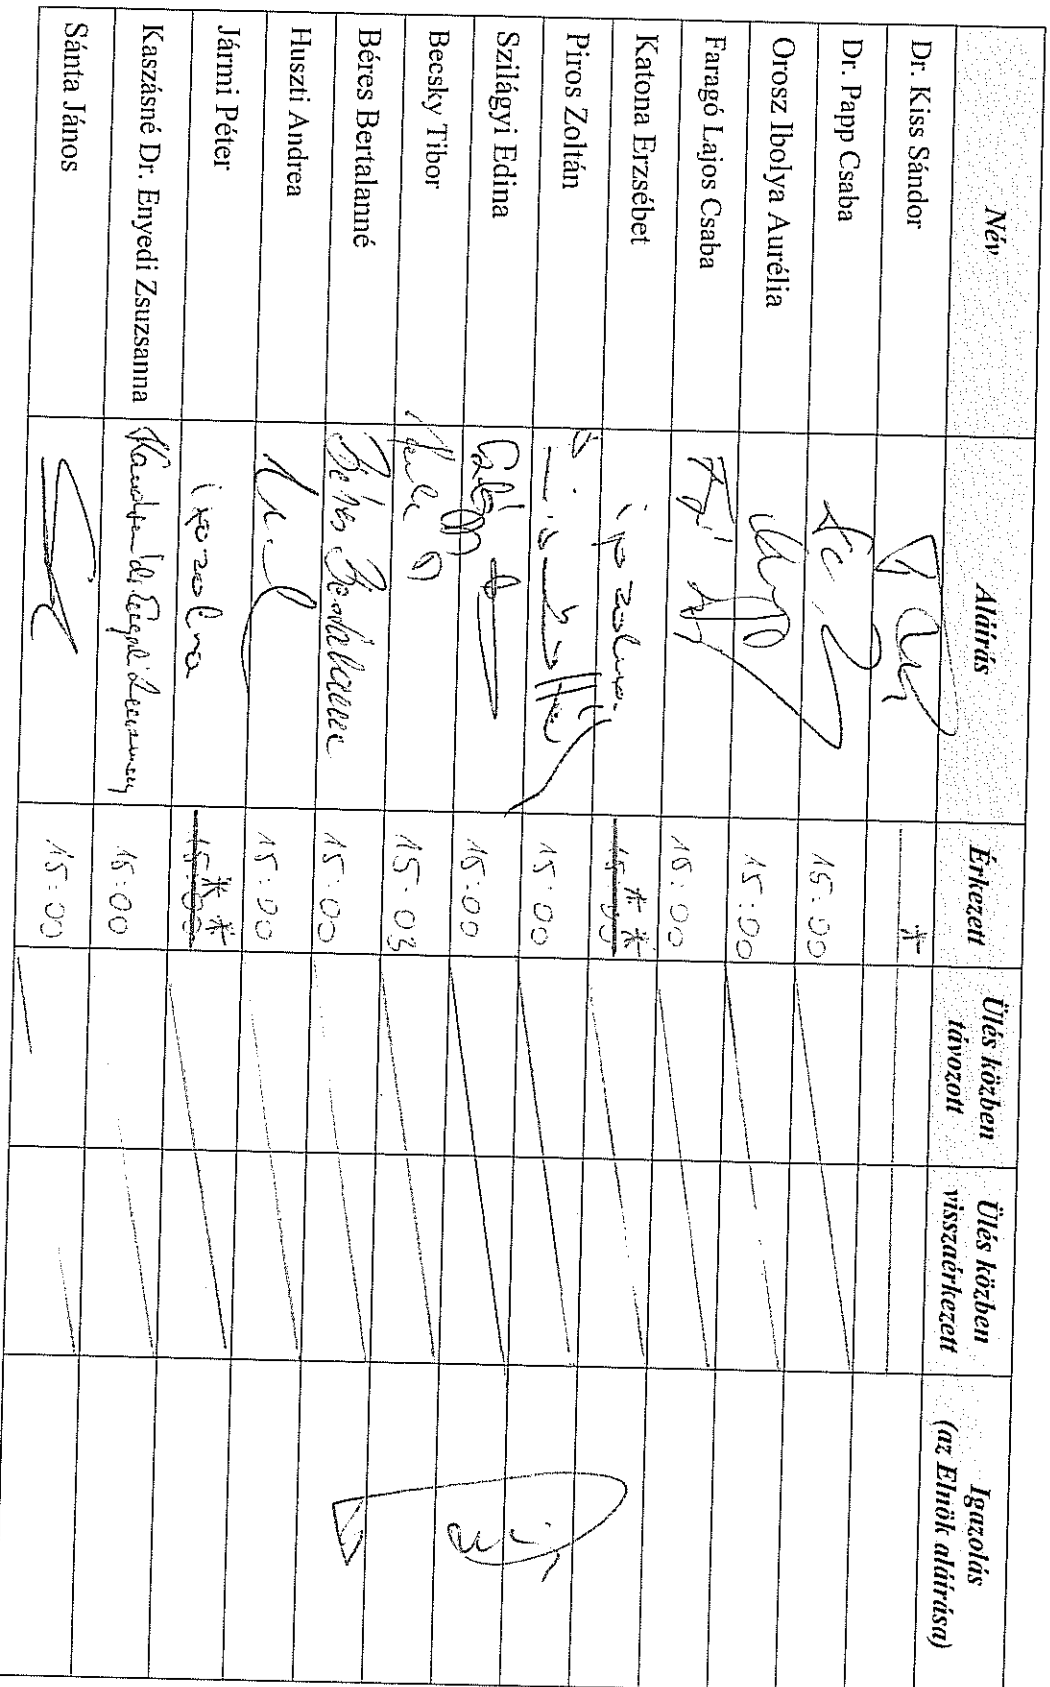 Név Aláírás Érkezett Ülés közben távozott Ülés közben visszaérkezett Igazolás (az Elnök aláírása)
Dr. Kiss Sándor *
Dr. Papp Csaba 15:00
Orosz Ibolya Aurélia 15:00
Faragó Lajos Csaba 15:00
Katona Erzsébet igazolva **
Piros Zoltán 15:00
Szilágyi Edina 15:00
Becsky Tibor 15:03
Béres Bertalanné Béres Bertalanné 15:00
Huszti Andrea 15:00
Jármi Péter igazolva ** 15:00
Kaszásné Dr. Enyedi Zsuzsanna 15:00
Sánta János 15:00